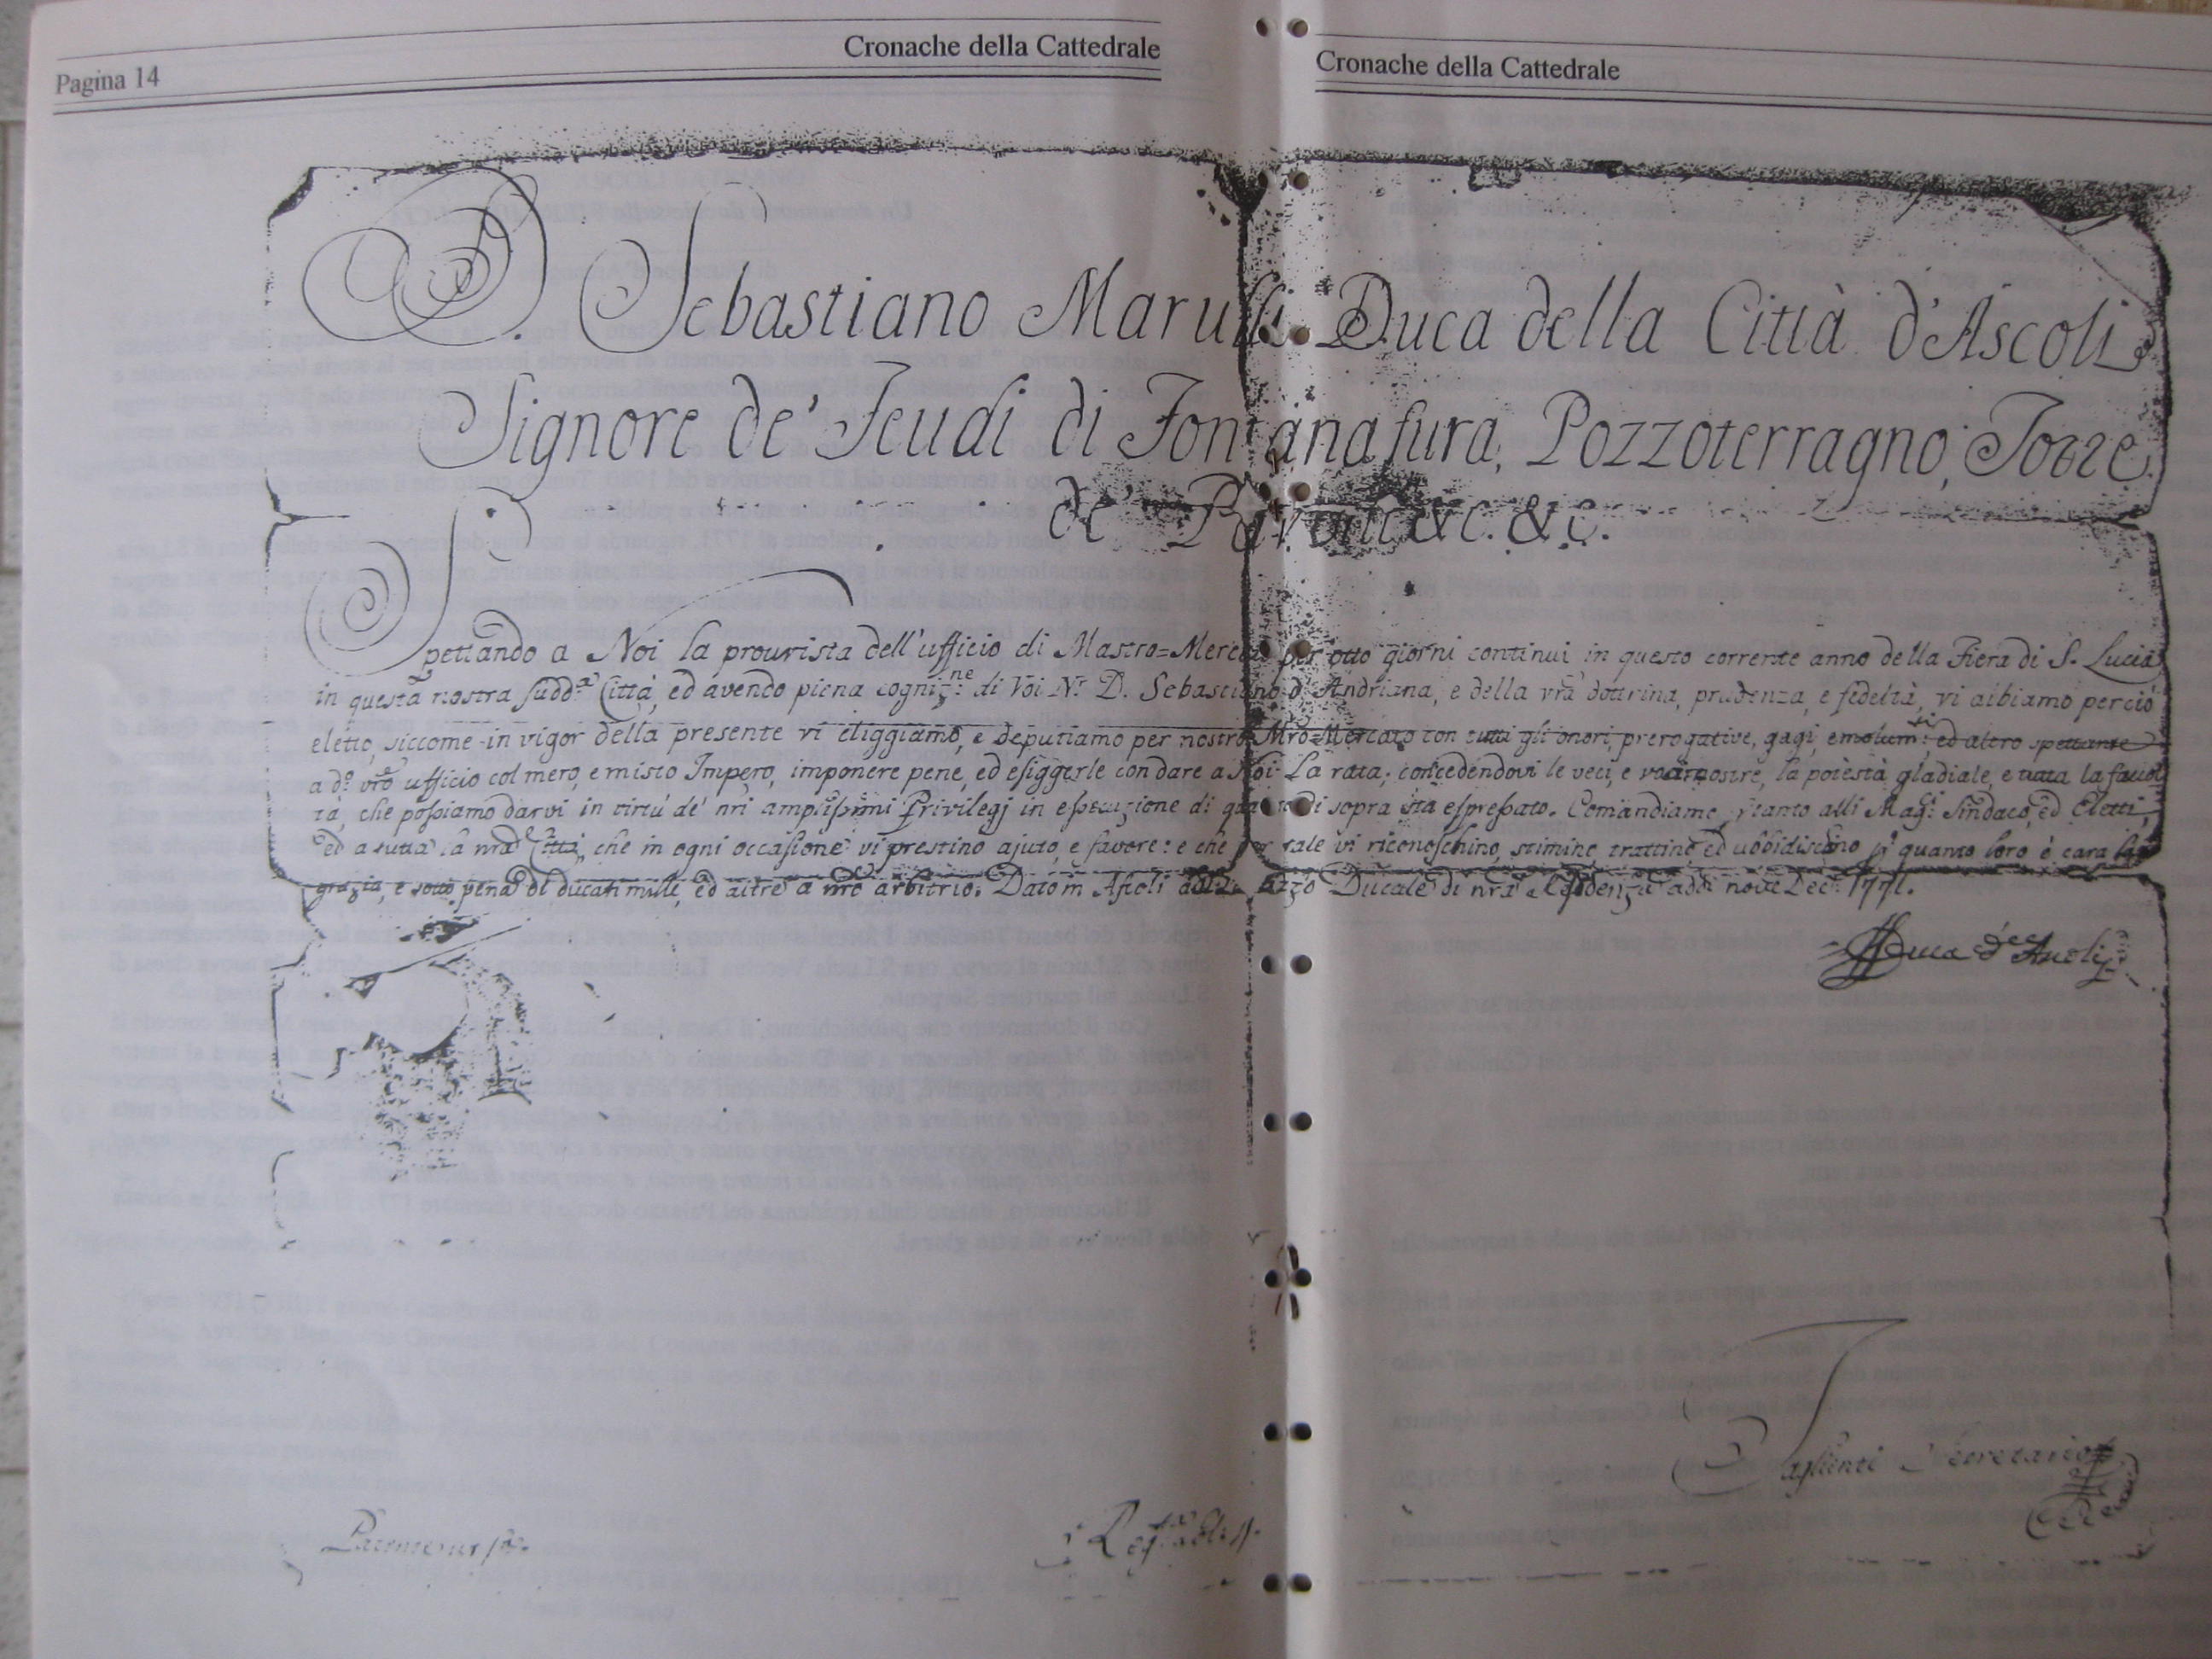 Pagina 14
Cronache della Cattedrale
Cronache della Cattedrale
D. Sebastiano Marulli Duca della Città d'Ascoli
Signore de' Feudi di Fontanafura, Pozzoterragno, Torre
de' &c. &c.
Spettando a Noi la provvista dell'ufficio di Mastro=Mercato per otto giorni continui in questo corrente anno della Fiera di S. Lucia
in questa nostra sudd.a Città, ed avendo piena cogniz.ne di Voi D. Sebastiano d'Andriana, e della vra dottrina, prudenza, e fedeltà, vi abbiamo perciò
eletto, siccome in vigor della presente vi eliggiamo, e deputiamo per nostro Mro Mercato con tutti gli onori, prerogative, gagi, emolum.ti ed altro spettante
a d.o vro ufficio col mero, e misto Impero, imponere pene, ed esiggerle con dare a Noi la rata; concedendovi le veci, e voci nostre, la potestà gladiale, e tutta la facol
tà, che possiamo darvi in virtù de' nri amplissimi Privilegj in essecuzione di quanto di sopra sta espressato. Comandiamo, ptanto alli Mag.ci Sindaco, ed Eletti,
ed a tutta la nra Città, che in ogni occasione vi prestino ajuto, e favore: e che per tale vi riconoschino, stimino, trattino ed ubbidischino p quanto loro è cara la
grazia, e sotto pena di ducati mille, ed altre a nro arbitrio. Dato in Ascoli dal Palazzo Ducale di nra Residenza addì nove Dec. 1771.
Duca d'Ascoli
Secretario